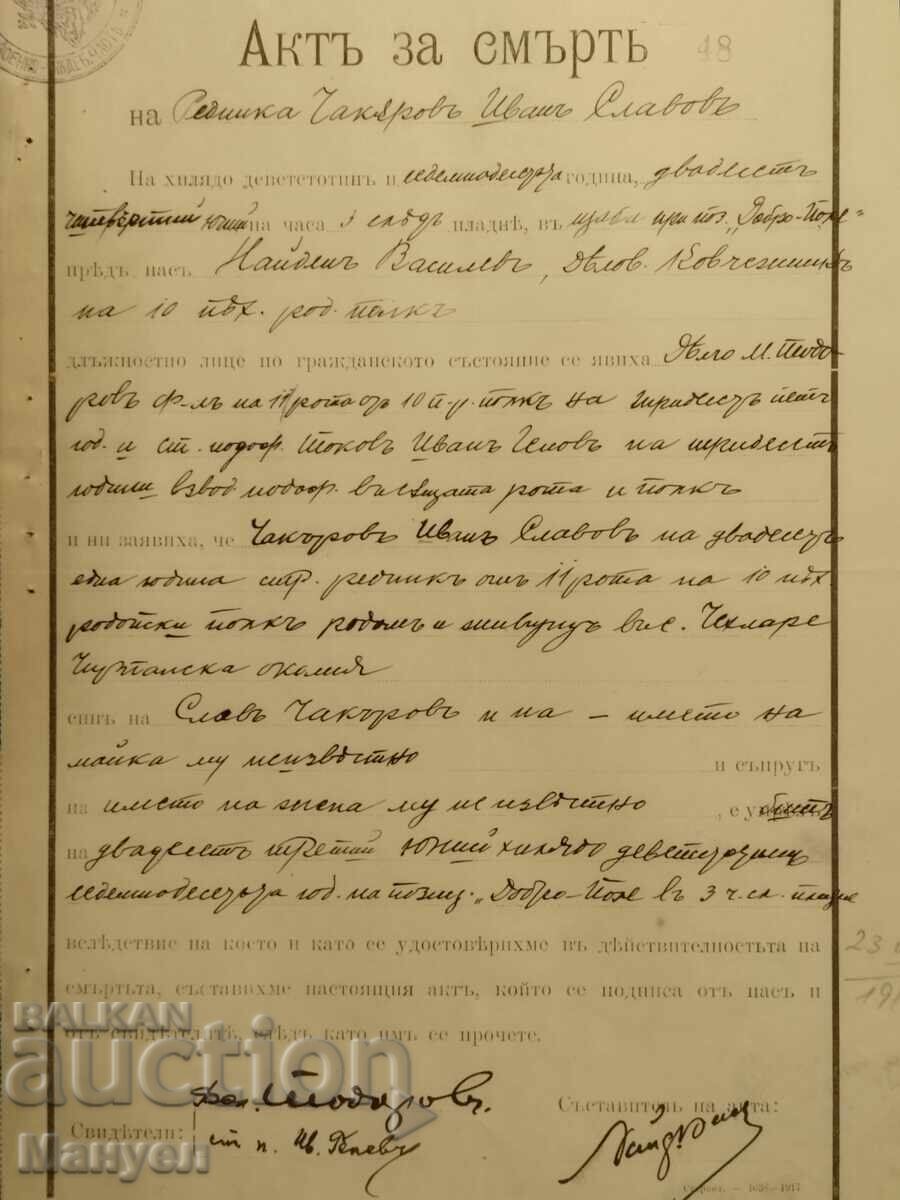 Актъ за смърть 48
на Редника Чакъровъ Иванъ Славовъ
На хилядо деветстотинъ и седемнадесета година, двадесть
четвъртий Юний на часа 3 следъ пладнѣ, въ щаба при поз. „Добро-Поле"
прѣдъ насъ Найденъ Василевъ, Дѣлов. Ковчежникъ
на 10 пѣх. род. полкъ
длъжностно лице по гражданското състояние се явиха М. Тодо-
ровъ ф-лъ на 11 рота отъ 10 п. р. полкъ на тридесетъ петь
год. и ст. подоф. Иванъ на тридесеть
години взвод. подоф. въ сѫщата рота и полкъ
и ни заявиха, че Чакъровъ Иванъ Славовъ на двадесетъ
една година стр. редникъ отъ 11 рота на 10 пѣх.
родопски полкъ родомъ и живущъ въ с. Чехларе
Чирпанска околия
синъ на Славъ Чакъровъ и на – името на
майка му неизвѣстно и съпругъ
на името на жена му неизвѣстно, е убитъ
на двадесеть третий Юний хилядо деветстотинъ
седемнадесета год. на позиц. „Добро-Поле въ 3 ч. сл. пладне
вслѣдствие на което и като се удостовѣрихме въ дѣйствителностьта на
смъртьта, съставихме настоящия актъ, който се подписа отъ насъ и
отъ свидѣтелитѣ, слѣдъ като имъ се прочете.
23
Съставитель на акта:
Фел. Тодоровъ.
Свидѣтели:
ст. п. Ив.
1917
BALKAN
auction
Мануел